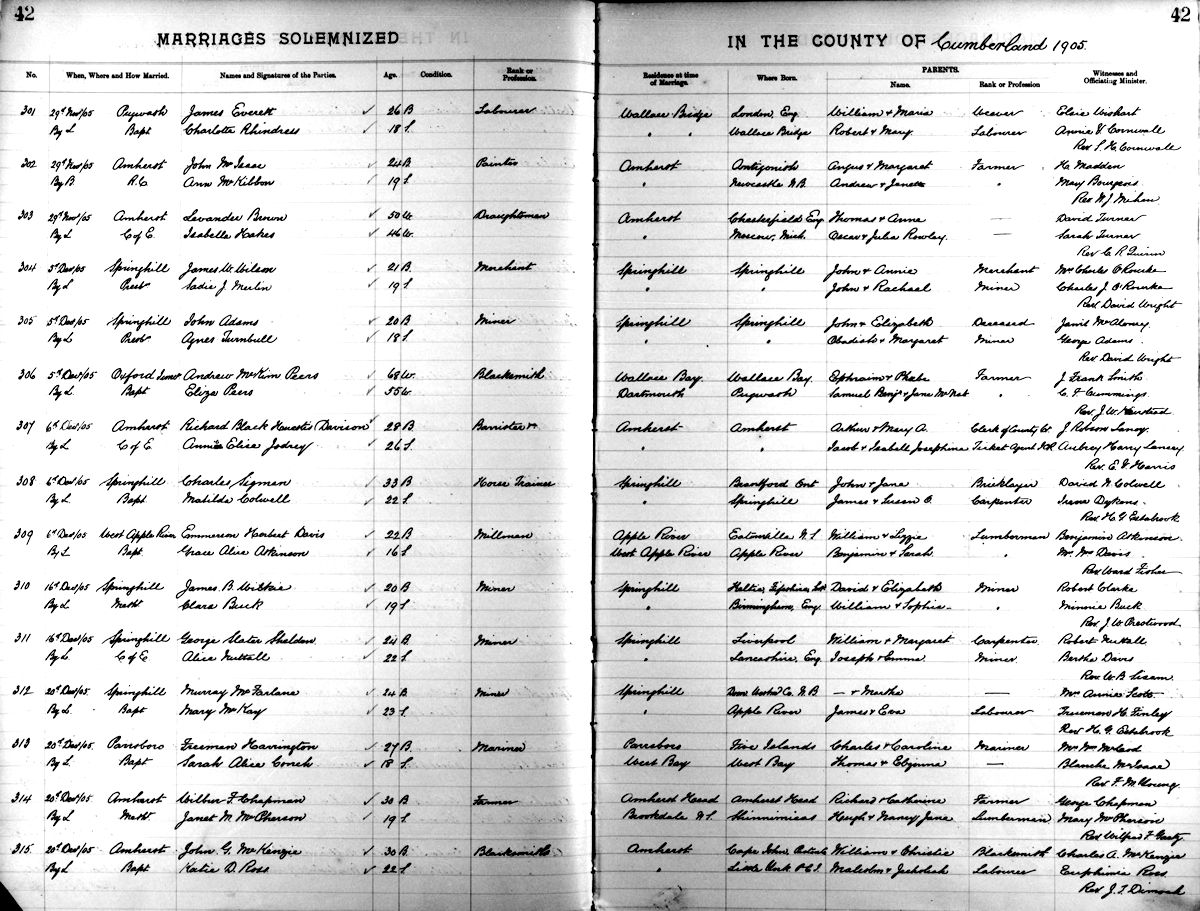 42 42
MARRIAGES SOLEMNIZED IN THE COUNTY OF Cumberland 1905.
No. When, Where and How Married. Names and Signatures of the Parties. Age. Condition. Rank or Profession. Residence at time of Marriage. Where Born. PARENTS. Name. Rank or Profession Witnesses and Officiating Minister.
301 29th Nov/05 Pugwash James Everett 26 B Labourer Wallace Bridge London Eng William & Maria Weaver Elsie Wishart
By L Bapt Charlotte Rhindress 18 S. " " Wallace Bridge Robert & Mary. Labourer Annie V Cornwall
Rev L. H. Cornwall
302 29th Nov/05 Amherst John McIsaac 24 B Painter Amherst Antigonish Angus & Margaret Farmer H. Madden
By B. R.C Ann McKibbon 19 S. " Newcastle N.B. Andrew & Janet " Mary Bourgeois
Rev W. J. Mihan
303 29th Nov/05 Amherst Levander Brown 50 W. Draughtsman Amherst Chesterfield Eng Thomas & Anne — David Turner
By L C of E. Isabella Hakes 46 W. " Moscow, Mich. Oscar & Julia Rowley. — Sarah Turner
Rev C. R. Quinn
304 5th Dec/05 Springhill James W. Wilson 21 B. Merchant Springhill Springhill John & Annie Merchant Mrs Charles O'Rourke
By L. Presbn Sadie J. Merlin 19 S " " John & Rachael Miner Charles J. O'Rourke
Rev. David Wright
305 5th Dec/05 Springhill John Adams 20 B Miner Springhill Springhill John & Elizabeth Deceased McAloney
By L. Presbn Agnes Turnbull 18 S. " " Obadiah & Margaret Miner George Adams
Rev David Wright
306 5th Dec/05 Oxford Andrew McKim Peers 68 W. Blacksmith Wallace Bay. Wallace Bay. Ephraim & Phebe Farmer J Frank Smith
By L. Bapt Eliza Peers 55 W. Dartmouth Pugwash Samuel Benj. & Jane McNab " C. F. Cummings
Rev J. W.
307 6th Dec/05 Amherst Richard Black Huestis Davison 28 B Barrister &c Amherst Amherst Arthur & Mary A. Clerk of County Ct J Robson Lamy
By L. C of E. Annie Elise Jodrey 26 S. " " Jacob & Isabell Josephine Ticket Agent Aubrey Harry Lamey
Rev. E. V Harris
308 6th Dec/05 Springhill Charles Sigman 33 B Horse Trainer Springhill Brantford Ont John & Jane Bricklayer David N Colwell
By L Bapt. Matilda Colwell 22 S. " Springhill James & Susan O. Carpenter Irene Dykens
Rev H. G Estabrook
309 6th Dec/05 West Apple River Emmerson Herbert Davis 22 B Millman Apple River Eatonville N.S William & Lizzie Lumberman Benjamin Atkinson
By L. Bapt. Grace Alice Atkinson 16 S. West Apple River Apple River Benjamin & Sarah " Mr. Wm Davis
Rev Ward Fisher
310 16th Dec/05 Springhill James B. Wilkie 20 B Miner Springhill David & Elizabeth Miner Robert Clarke
By L Meth Clara Buck 19 S. " Birmingham, Eng William & Sophia " Minnie Buck
Rev J. W. Prestwood
311 16th Dec/05 Springhill George Slater Sheldon 24 B Miner Springhill Liverpool William & Margaret Carpenter Robert Nuttall
By L. C of E Alice Nuttall 22 S. " Lancashire, Eng Joseph & Emma Miner Bertha Davis
Rev. W. B Sisam
312 20th Dec/05 Springhill Murray McFarlane 24 B Miner Springhill Co. N.B — & Martha — Mrs Annie Scott
By L. Bapt Mary McKay 23 S. " Apple River James & Eva Labourer Freeman H. Finley
Rev H. G. Estabrook
313 20th Dec/05 Parrsboro Freeman Harrington 27 B Mariner Parrsboro Five Islands Charles & Caroline Mariner Mr Wm McLeod
By L. Bapt. Sarah Alice Conch 18 S. West Bay West Bay Thomas & — Blanche McIsaac
Rev F. M. Young
314 20th Dec/05 Amherst Wilber F. Chapman 30 B Farmer Amherst Head Amherst Head Richard & Catherine Farmer George Chapman
By L. Meth Janet M. McPherson 19 S. Brookdale N.S. Shinimicas Hugh & Nancy Jane Lumberman Mary McPherson
Rev Wilfred F Gaetz
315 20th Dec/05 Amherst John G. McKenzie 30 B Blacksmith Amherst Cape John William & Christie Blacksmith Charles A. McKenzie
By L Bapt Katie D. Ross 22 S. " Little York P.E.I. Malcolm & Labourer Euphimia Ross
Rev J. T. Dimock